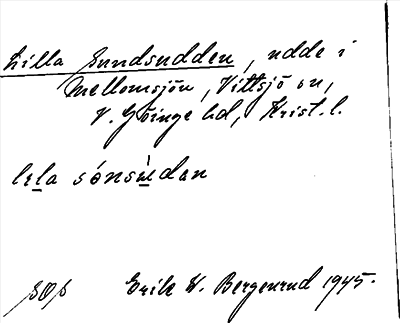 Lilla Sundsudden, udde i
Mellomsjön, Vittsjö sn,
V. Göinge hd, Krist. l.
lela sónsùdan
Erik W. Bergenrud 1945.